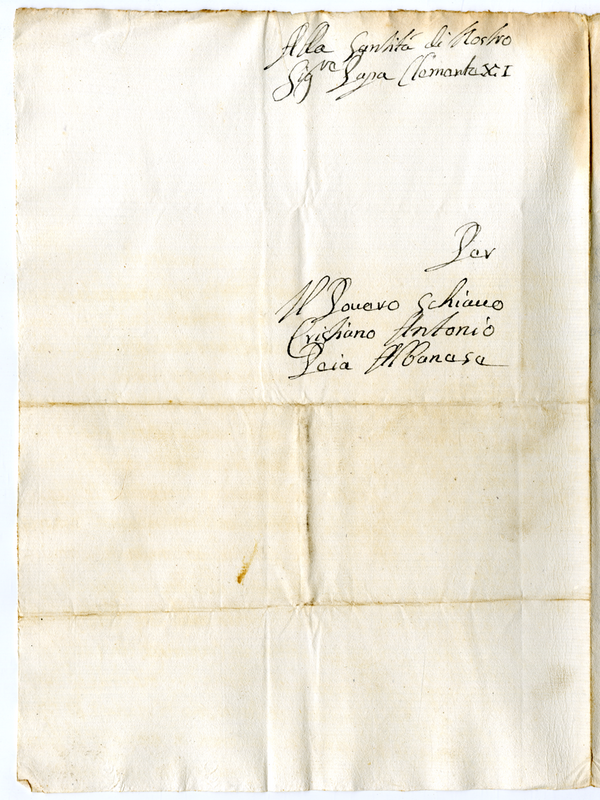 Alla Santità di Nostro
Sig.re Papa Clemente XI
Per
Il Povero Schiauo
Cristiano Antonio
Albanese